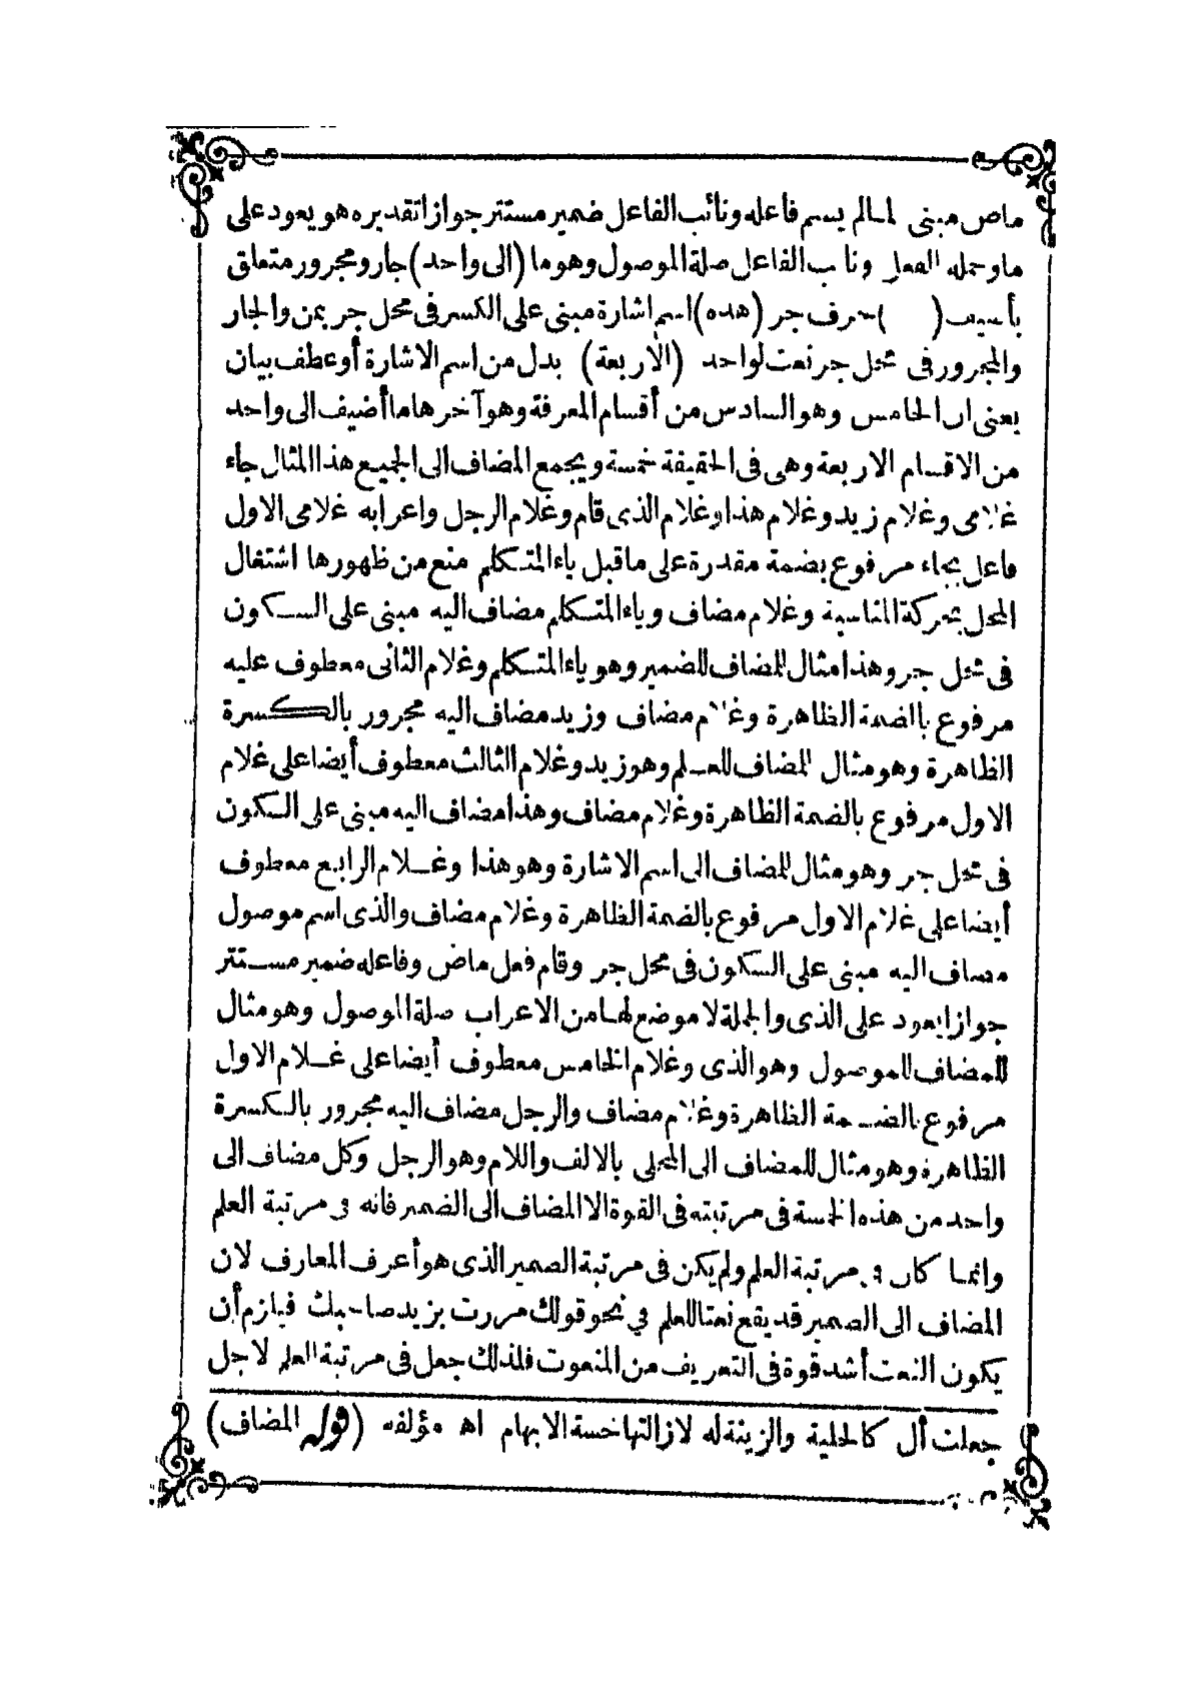 ماض مبنى لما لم يسم فاعله ونائب الفاعل ضمير مستتر جوازا تقديره هو يعود على
ما وجملة الفعل ونائب الفاعل صلة الموصول وهو ما (الى واحد) جار ومجرور متعلق
بأضيف ( ) حرف جر (هذه) اسم اشارة مبنى على الكسر فى محل جر بمن والجار
والمجرور فى محل جر نعت لواحد (الاربعة) بدل من اسم الاشارة أو عطف بيان
يعنى ان الخامس وهو السادس من أقسام المعرفة وهو آخرها ما أضيف الى واحد
من الاقسام الاربعة وهى فى الحقيقة خمسة ويجمع المضاف الى الجميع هذا المثال جاء
غلامى وغلام زيد وغلام هذا وغلام الذى قام وغلام الرجل واعرابه غلامى الاول
فاعل بجاء مرفوع بضمة مقدرة على ما قبل ياء المتكلم منع من ظهورها اشتغال
المحل بحركة المناسبة وغلام مضاف وياء المتكلم مضاف اليه مبنى على السكون
فى محل جر وهذا مثال للمضاف للضمير وهو ياء المتكلم وغلام الثانى معطوف عليه
مرفوع بالضمة الظاهرة وغلام مضاف وزيد مضاف اليه مجرور بالكسرة
الظاهرة وهو مثال المضاف للعلم وهو زيد وغلام الثالث معطوف أيضا على غلام
الاول مرفوع بالضمة الظاهرة وغلام مضاف وهذا مضاف اليه مبنى على السكون
فى محل جر وهو مثال للمضاف الى اسم الاشارة وهو هذا وغلام الرابع معطوف
أيضا على غلام الاول مرفوع بالضمة الظاهرة وغلام مضاف والذى اسم موصول
مضاف اليه مبنى على السكون فى محل جر وقام فعل ماض وفاعله ضمير مستتر
جوازا يعود على الذى والجملة لا موضع لها من الاعراب صلة الموصول وهو مثال
للمضاف للموصول وهو الذى وغلام الخامس معطوف أيضا على غلام الاول
مرفوع بالضمة الظاهرة وغلام مضاف والرجل مضاف اليه مجرور بالكسرة
الظاهرة وهو مثال للمضاف الى المحلى بالالف واللام وهو الرجل وكل مضاف الى
واحد من هذه الخمسة فى مرتبته فى القوة الا المضاف الى الضمير فانه فى مرتبة العلم
وانما كان فى مرتبة العلم ولم يكن فى مرتبة الضمير الذى هو أعرف المعارف لان
المضاف الى الضمير قد يقع نعتا للعلم في نحو قولك مررت بزيد صاحبك فيلزم أن
يكون النعت أشد قوة فى التعريف من المنعوت فلذلك جعل فى مرتبة العلم لاجل
جعلت أل كالحلية والزينة له لازالتها خسة الابهام اه مؤلفه (قوله المضاف)